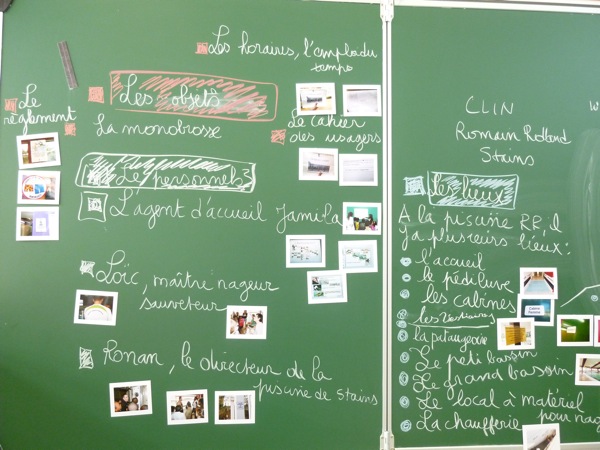 Les horaires, l'emploi du
temps
Le
règlement
Les objets
La monobrosse
Le cahier
des usagers
Le personnel
L'agent d'accueil Jamila
Loïc, maître nageur
sauveteur
Ronan, le directeur de la
piscine de Stains
CLIN
Romain Rolland
Stains
Les lieux
A la piscine RR, il
y a plusieurs lieux :
l'accueil
le pédiluve
les cabines
les vestiaires
la pataugeoire
Le petit bassin
Le grand bassin
Le local à matériel
pour nag
La chaufferie